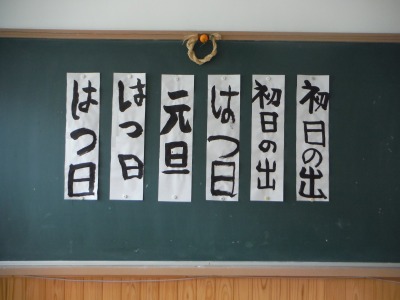 初日の出
初日の出
はつ日
元旦
はつ日
はつ日